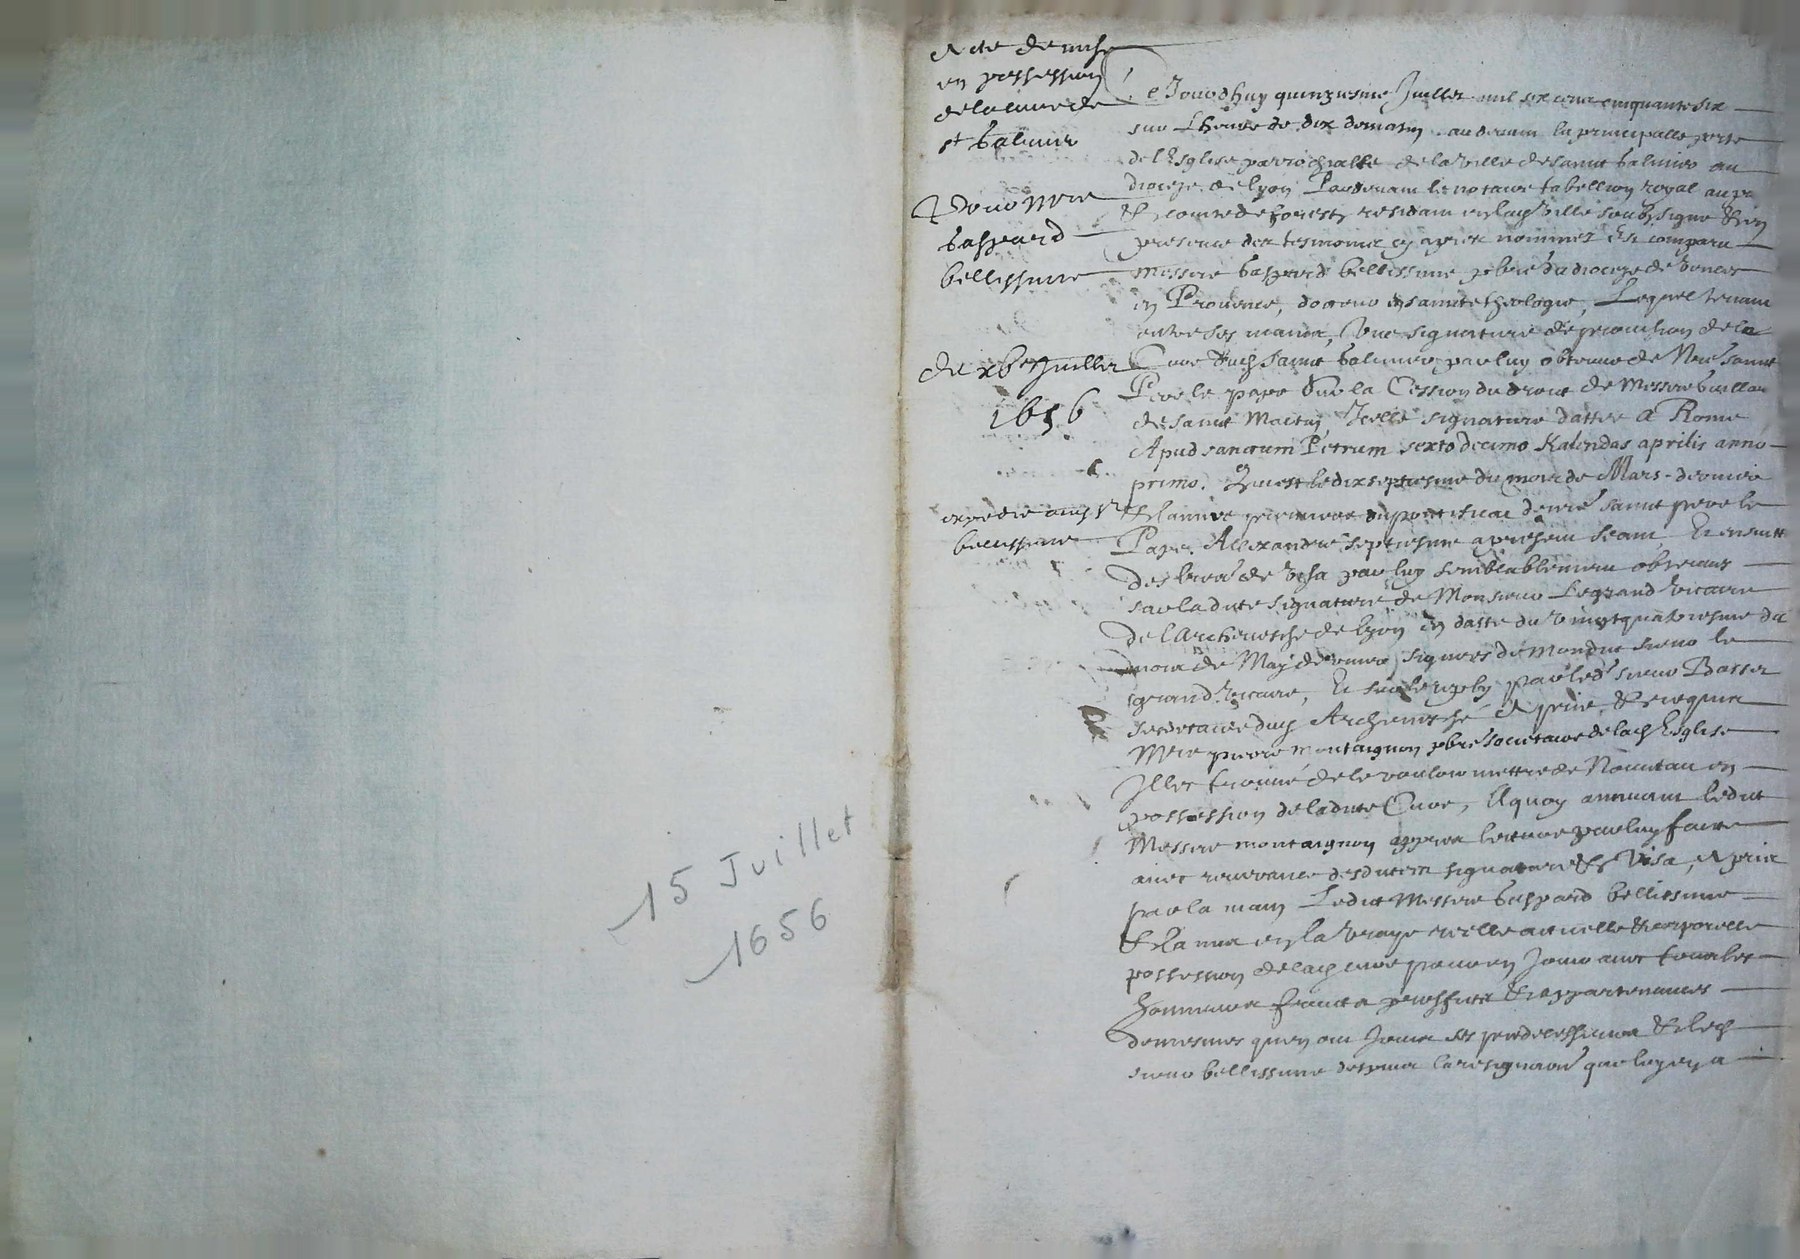 15 Juillet
1656
Acte de mise
en possession
de la cure de
st Galmier
Pour Mre
Gaspard
bellissime
du xve Juillet
1656
expedie aud sr
bellissime
Ce Jourdhuy quinziesme Juillet mil six cens cinquante six
sur Lheure de dix du matin au devant la principalle porte
de lEsglise parrochialle de la ville de sainct Galmier au
dioceze de lyon Pardevant le notaire tabellion royal au
& comte de forestz residant en lad ville soubzsigne & en
presence des tesmoings cy apres nommez Est comparu
messire Gaspard bellissime pbre du dioceze de
en Provence, docteur en saincte theologie, Lequel tenant
entre ses mains, Une signature de provision de la
Cure dud Sainct Galmier par luy obtenue de Nre sainct
Pere le pape sur la Cession du droict de Messire
de sainct Martin, Icelle signature dattee a Rome
Apud sanctum Petrum sexto decimo Kalendas aprilis anno
primo. Qui est le dix septiesme du mois de Mars dernier
& lannee premiere du pontificat de nre sainct pere le
Pape Alexandre septiesme a present seant Et ensuitte
des lres de visa par luy semblablement obtenues
sur ladite signature de Monsieur Le grand vicaire
de lArchevesche de lyon en datte du vingt quatriesme du
mois de May dernier signees dudit sieur le
grand vicaire, Et par led sieur Basset
secretaire dud Archevesché A prié, & requis
Mre pierre montaignon pbre societaire de lad Esglise
Illec trouvé de le vouloir mettre de Nouveau en
possession de ladite Cure, A quoy annuant ledit
Messire montaignon appres lecture par luy faicte
avec reverance desdites signature & Visa, A prins
par la main Ledit Messire Gaspard bellissime
& la mis en la vraye reelle actuelle & corporelle
possession de lad cure pour en Jouir avec tous les
honneurs fruicts proffits & appartenances
de mesmes quen ont Jouis ses predecesseurs & led
sieur bellissime despuis la resignaon que luy en a